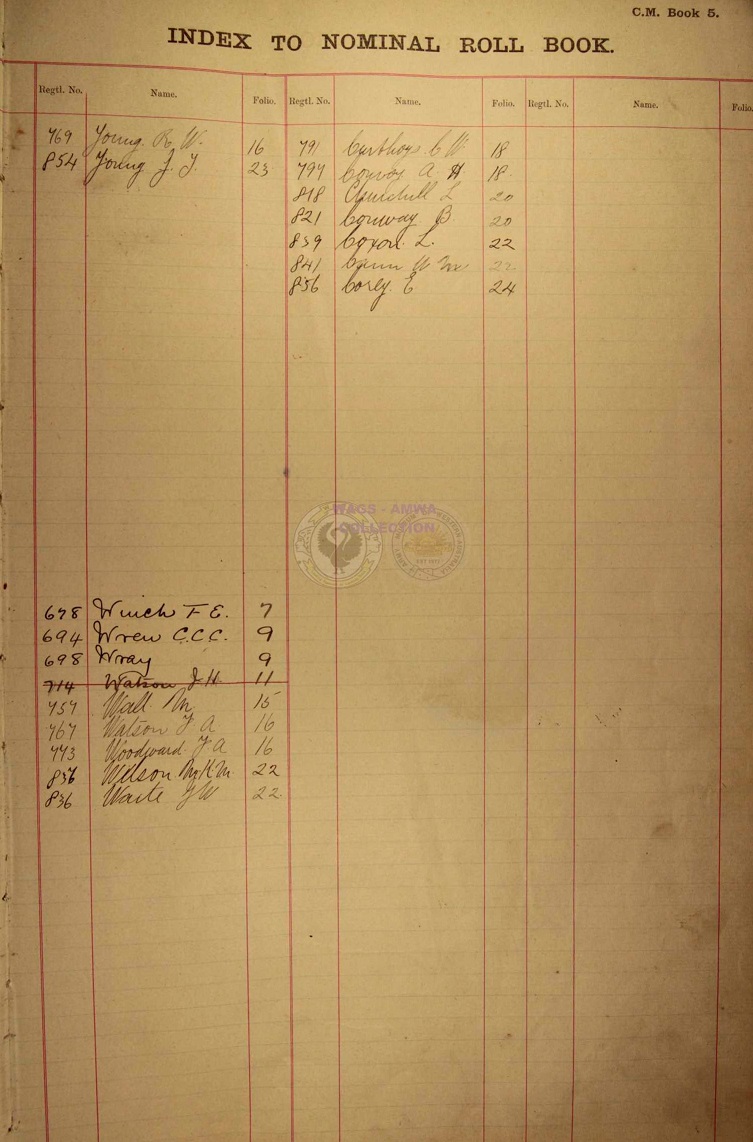 C.M. Book 5.
INDEX TO NOMINAL ROLL BOOK.
Regtl. No. Name. Folio. Regtl. No. Name. Folio. Regtl. No. Name. Folio.
769 Young R W. 16
854 Young J. 23
791 C W. 18
797 Conroy A H 18.
818 Churchill L 20
821 Conway B. 20
839 Coxon. L. 22
841 22
856 Corly. E 24
WAGS - AMWA
COLLECTION
678 Winch F E. 7
694 Wren C.C.C. 9
698 Wray 9
714 Watson J H 11
757 Wall M 15
767 Watson F A 16
773 Woodward F A 16
836 Wilson 22
836 Waite W 22.